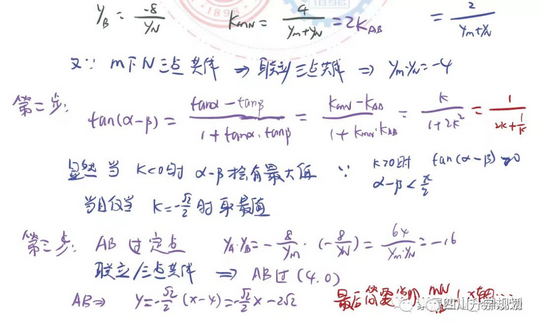 y_B = -8/y_N   k_MN = 4/(y_M+y_N) = 2k_AB   = 2/(y_M+y_N)
又∵ M F N 三点共线 ⇒ 联立/三点共线 ⇒ y_M·y_N = -4
第二步: tan(α-β) = (tanα - tanβ)/(1 + tanα·tanβ) = (k_MN - k_AB)/(1 + k_MN·k_AB) = k/(1+2k²) = 1/(2k+1/k)
显然 当 k<0时 α-β 没有最大值 ∵ k>0时 tan(α-β)>0
α-β<π/2
当且仅当 k=-√2/2 时取最值
第三步: AB 过定点 y_A·y_B = -8/y_M·(-8/y_N) = 64/(y_M·y_N) = -16
联立/三点共线 ⇒ AB过(4,0)
AB⇒ y=-√2/2(x-4)=-√2/2x-2√2 最后 需要说明 MN
四川升学规划